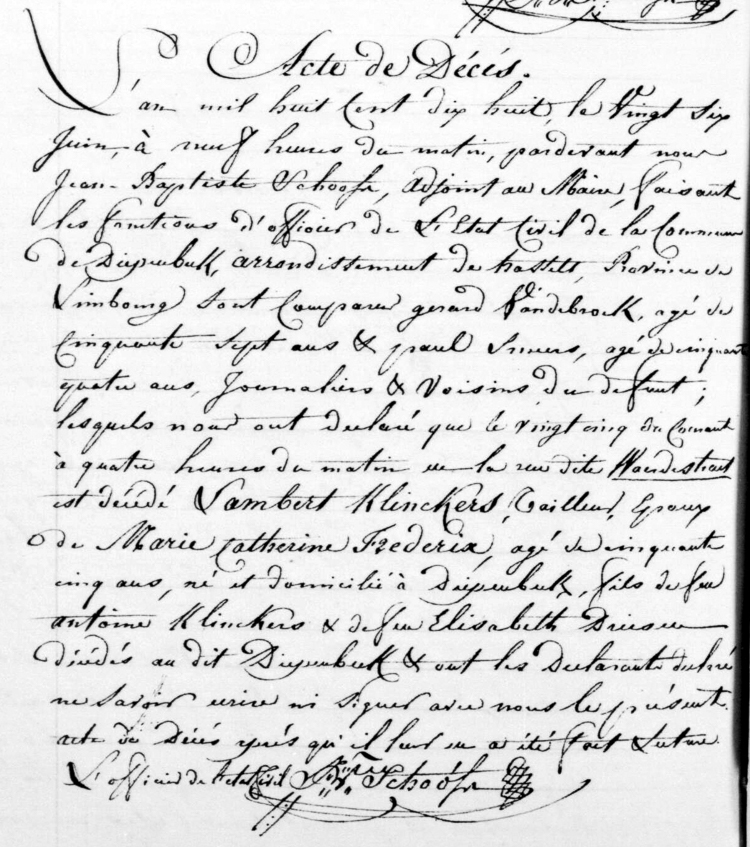 Acte de Décès.
L'an mil huit Cent dix huit, le Vingt Six
Juin, à neuf heures du matin, pardevant nous
Jean-Baptiste Schoofs, adjoint au Maire, faisant
les fonctions d'officier de L'Etat Civil de la Commune
de Diepenbeek, arrondissement de hasselt, Province de
Limbourg sont Comparus gerard Vandebroek, agé de
Cinquante Sept ans & paul Smeers, agé de cinquante
quatre ans, Journaliers & Voisins du defunt;
lesquels nous ont declaré que le vingt cinq du Courant
à quatre heures du matin en la rue dite
est décédé Lambert Klinckers, Tailleur, Epoux
de Marie Catherine Frederix, agé de cinquante
cinq ans, né et domicilié à Diepenbeek, fils de feu
antoine Klinckers & de feu Elisabeth Driesen
décédés au dit Diepenbeek & ont les Declarants declaré
ne savoir ecrire ni signer avec nous le présent
acte de Décès après qu'il leur en a été fait Lecture
L'officier de l'etat Civil Schoofs